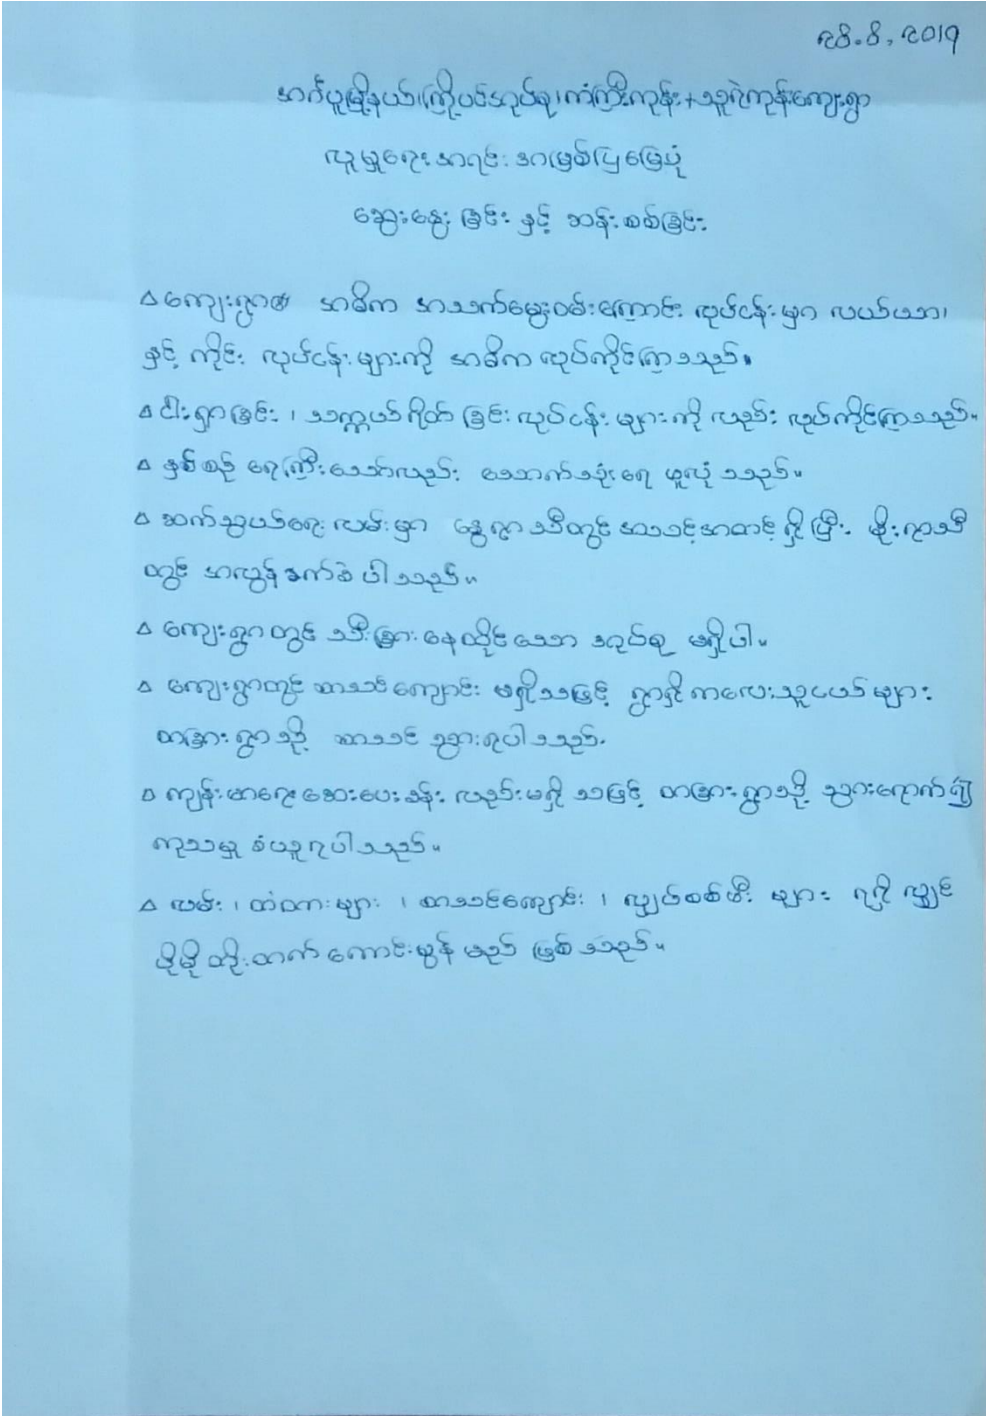 ၃၁.8.2019
အင်္ဂပူမြို့နယ်၊ကြို့ပင်အုပ်စု၊ကံကြီးကုန်း+သူရဲကုန်းကျေးရွာ
လူမှုရေး အရင်းအမြစ်ပြမြေပုံ
ဆွေးနွေးခြင်း နှင့် ဆန်းစစ်ခြင်း
∆ ကျေးရွာ၏ အဓိက အသက်မွေးဝမ်းကြောင်း လုပ်ငန်းမှာ လယ်ယာ၊
နှင့် ကိုင်း လုပ်ငန်းများကို အဓိက လုပ်ကိုင်ကြသည်။
∆ ငါးရှာခြင်း ၊ သက္ကယ်ရိတ်ခြင်းလုပ်ငန်းများကို လည်း လုပ်ကိုင်ကြသည်။
∆ နှစ်စဉ် ရေကြီးသော်လည်း သောက်သုံးရေ ဖူလုံသည်။
∆ ဆက်သွယ်ရေး လမ်းမှာ နွေရာသီတွင် အသင့်အတင့် ရှိပြီး မိုးရာသီ
တွင် အလွန်ခက်ခဲပါသည်။
∆ ကျေးရွာတွင် သီးခြားနေထိုင်သော အုပ်စု မရှိပါ။
∆ ကျေးရွာတွင် စာသင်ကျောင်း မရှိသဖြင့် ရွာရှိကလေးသူငယ်များ
တခြားရွာသို့ စာသင် သွားရပါသည်။
∆ ကျန်းမာရေးဆေးပေးခန်း လည်းမရှိသဖြင့် တခြားရွာသို့ သွားရောက်၍
ကုသမှု ခံယူရပါသည်။
∆ လမ်း ၊ တံတားများ ၊ စာသင်ကျောင်း ၊ လျှပ်စစ်မီး များ ရရှိလျှင်
ပိုမိုတိုးတက်ကောင်းမွန်မည်ဖြစ်သည်။